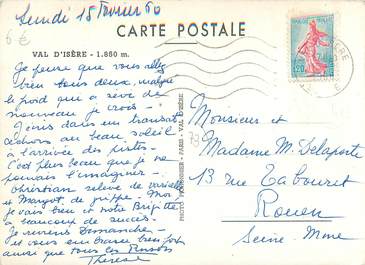 Lundi 15 Février 60
6€
CARTE POSTALE
VAL D'ISÈRE - 1.850 m.
Je pense que vous allez
bien tous deux, malgré
le froid qui a sévi de
nouveau je crois -
Je suis dans un transat
au beau soleil
à l'arrivée des pistes -
C'est plus beau que je ne
pouvais l'imaginer -
Christian relève de varicelle
et Margot, de grippe - Moi,
je vais bien et notre Brigitte
a beaucoup de succès.
Je reviens Dimanche -
et vous embrasse bien fort
ainsi que tous
Thérèse
PHOTO
VAL D'ISÈRE
0,20
Monsieur et
Madame M. Delaporte
13 rue Tabouret
Rouen
Seine-Mme